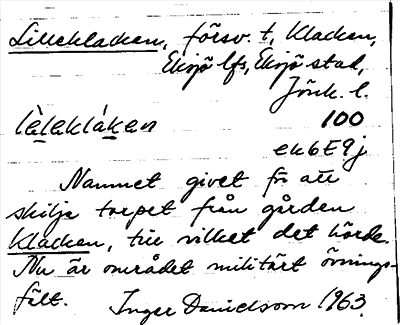 Lillekla​cken, försv. t, Klacken,
Eksjö lfs, Eksjö stad,
Jönk. l.
lìlekláken 100
ek6E9j
Namnet givet för att
skilja torpet från gården
Klacken, till vilket det hörde.
Nu är området militärt övnings-
fält. Inger Danielsson 1963.